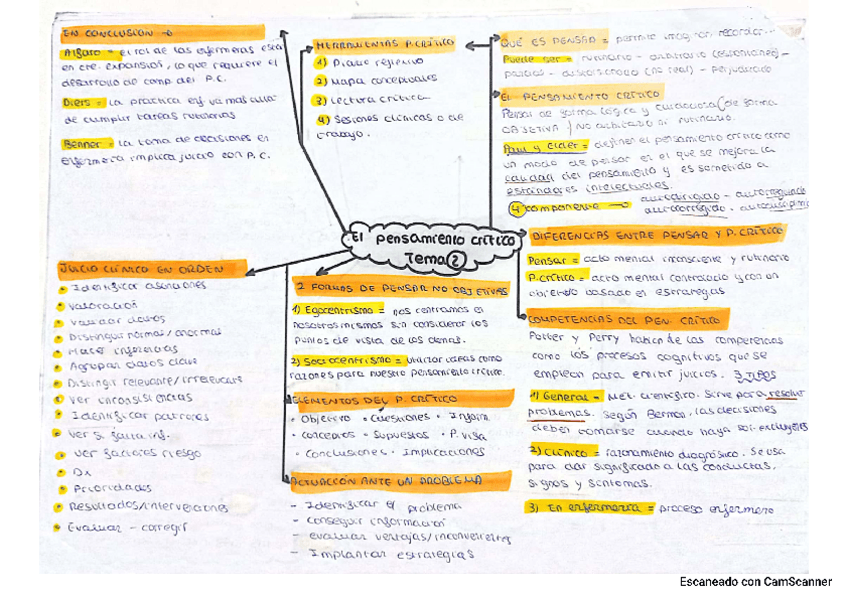 EN CONCLUSIÓN →
Alfaro = el rol de las enfermeras está
en cte. expansión, lo que requiere el
desarrollo de comp. del P.C.
Diers = la práctica enf va más allá
de cumplir tareas rutinarias
Benner = la toma de decisiones en
enfermera implica juicio con P.C.
HERRAMIENTAS P. CRÍTICO
1) Diálogo reflexivo
2) Mapa conceptuales
3) Lectura crítica
4) Sesiones clínicas o de
trabajo.
QUÉ ES PENSAR = permite imaginar, recordar...
Puede ser = rutinario - arbitrario (espontáneo) -
parcial - distorsionado (no real) - prejuiciado
EL PENSAMIENTO CRÍTICO
Pensar de forma lógica y cuidadosa (de forma
OBJETIVA) NO arbitrario ni rutinario.
Paul y Elder = definen el pensamiento crítico como
un modo de pensar en el que se mejora la
calidad del pensamiento y es sometido a
estándares intelectuales.
4 componente → autodirigido - autoregulado
autocorregido - autodisciplina
El pensamiento crítico
Tema 2
DIFERENCIAS ENTRE PENSAR Y P. CRÍTICO
Pensar = acto mental inconsciente y rutinario
P. Crítico = acto mental controlado y con un
objetivo basado en estrategias
COMPETENCIAS DEL PEN. CRÍTICO
Potter y Perry hablan de las competencias
como los procesos cognitivos que se
emplean para emitir juicios. 3 TIPOS
1) General = Met. científico. Sirve para resolver
problemas. Según las decisiones
deben tomarse cuando haya sol. excluyentes
2) Clínico = razonamiento diagnóstico. Se usa
para dar significado a las conductas,
signos y síntomas.
3) En enfermería = proceso enfermero
JUICIO CLÍNICO EN ORDEN
• Identificar
• Valoración
• Validar datos
• Distinguir normal/anormal
• Hacer inferencias
• Agrupar datos clave
• Distinguir relevante/irrelevante
• Ver inconsistencias
• Identificar patrones
• Ver si falta inf.
• Ver factores riesgo
• Dx
• Prioridades
• Resultados/intervenciones
• Evaluar - corregir
2 FORMAS DE PENSAR NO OBJETIVAS
1) Egocentrismo = nos centramos en
nosotros mismos sin considerar los
puntos de vista de los demás.
2) Sociocentrismo = utilizar ideas como
razones para nuestro pensamiento crítico.
ELEMENTOS DEL P. CRÍTICO
• Objetivo • Cuestiones • Inform
• Conceptos • Supuestos • P. Vista
• Conclusiones • Implicaciones
ACTUACIÓN ANTE UN PROBLEMA
- Identificar el problema
- Conseguir información
- evaluar ventajas/inconvenientes
- Implantar estrategias
Escaneado con CamScanner